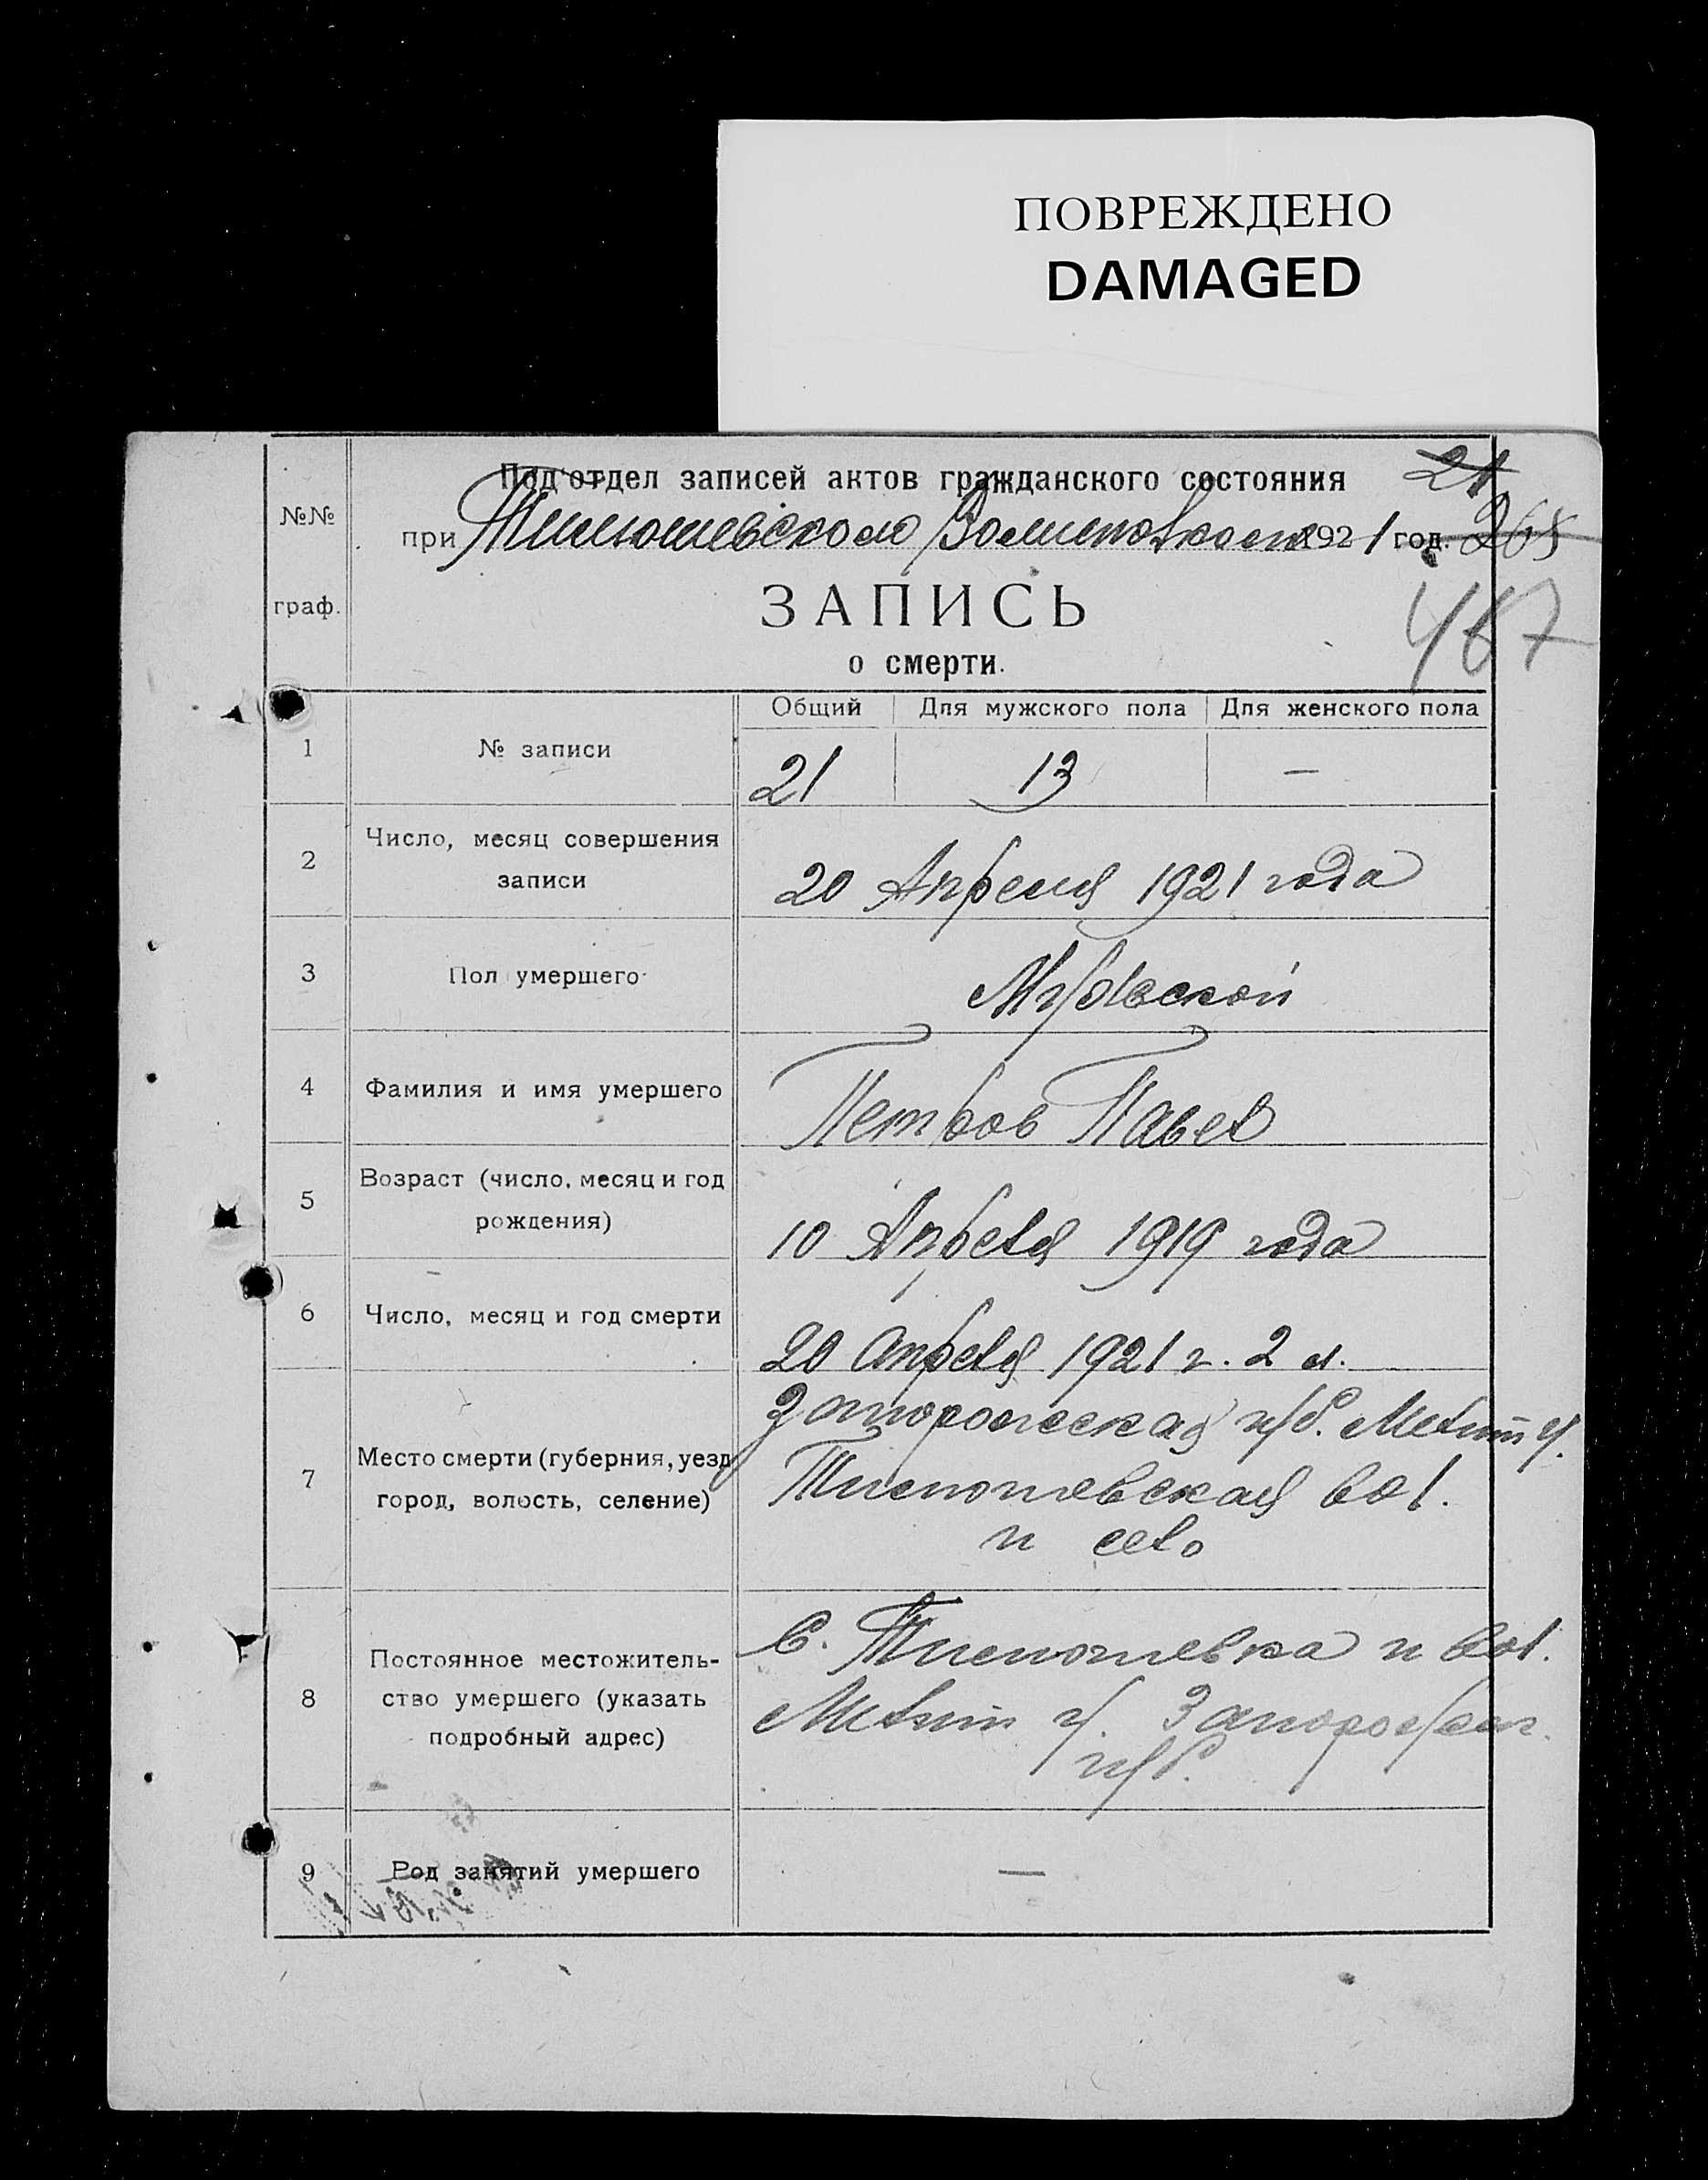 ПОВРЕЖДЕНО
DAMAGED
Под'отдел записей актов гражданского состояния 21
при Тимошевском Волисполкоме 1921 год. 268
467
№№
граф.
ЗАПИСЬ
о смерти.
Общий Для мужского пола Для женского пола
1 № записи 21 13 —
2 Число, месяц совершения
записи
20 Апреля 1921 года
3 Пол умершего Мужской
4 Фамилия и имя умершего Петров Павел
5 Возраст (число, месяц и год
рождения)
10 Апреля 1919 года
6 Число, месяц и год смерти 20 Апреля 1921 г. 2 л.
7 Место смерти (губерния, уезд
город, волость, селение)
Запорожская губ. Мелит у.
Тимошевская вол.
и село
8 Постоянное местожитель-
ство умершего (указать
подробный адрес)
С. Тимошевка и вол.
Мелит у. Запорожск.
губ.
9 Род занятий умершего —